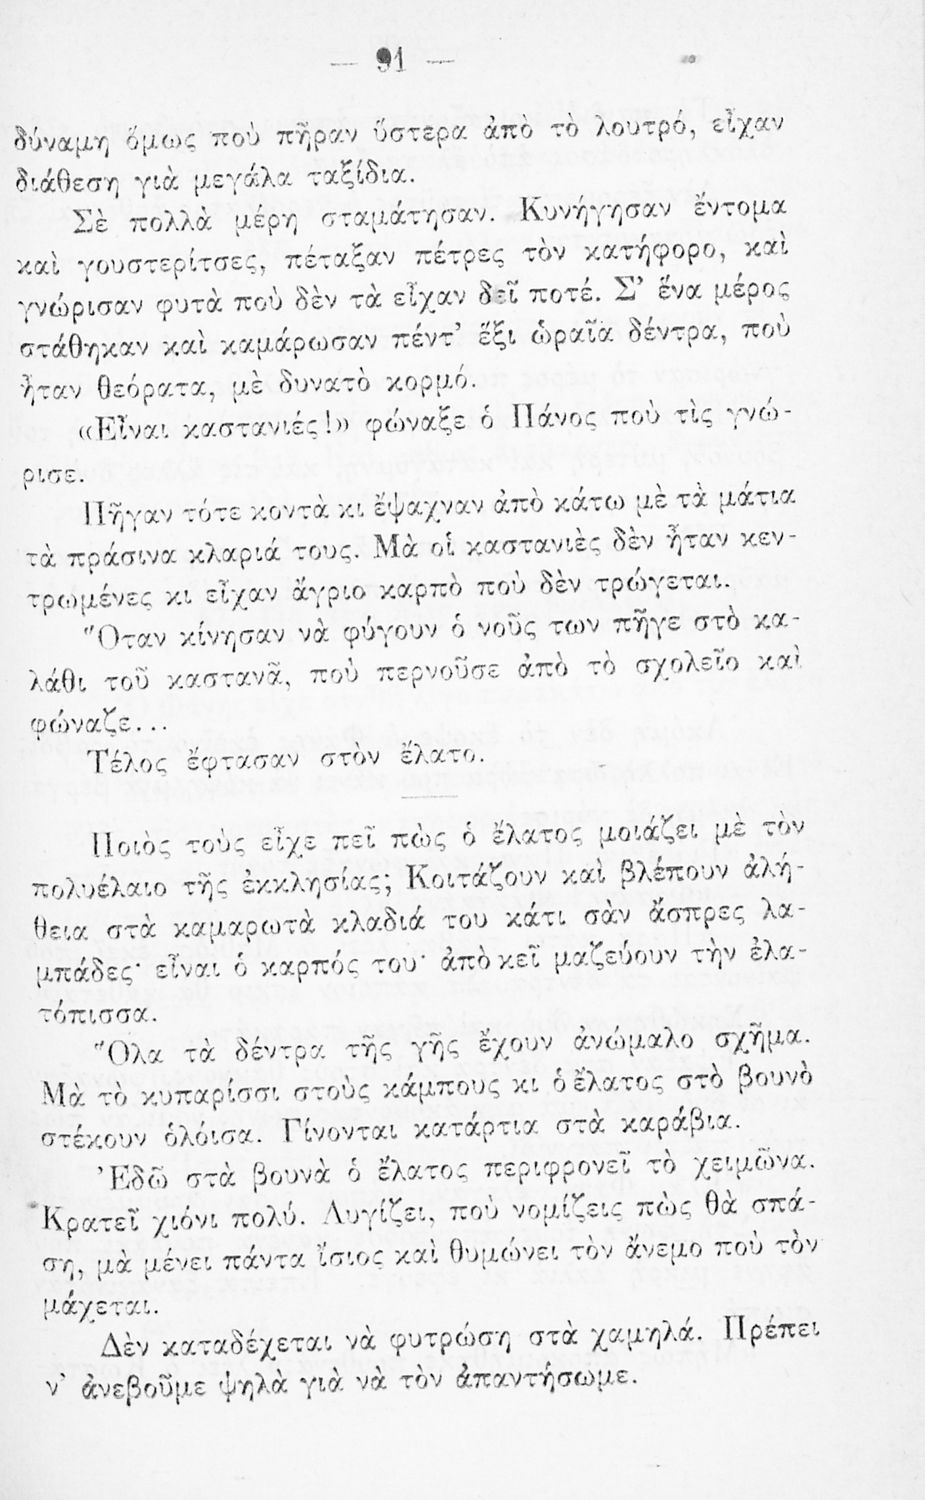 — 91 —
δύναμη ὅμως ποὺ πῆραν ὕστερα ἀπὸ τὸ λουτρό, εἶχαν
διάθεση γιὰ μεγάλα ταξίδια.
Σὲ πολλὰ μέρη σταμάτησαν. Κυνήγησαν ἔντομα
καὶ γουστερίτσες, πέταξαν πέτρες τὸν κατήφορο, καὶ
γνώρισαν φυτὰ ποὺ δὲν τὰ εἶχαν δεῖ ποτέ. Σ’ ἕνα μέρος
στάθηκαν καὶ καμάρωσαν πέντ’ ἕξι ὡραῖα δέντρα, ποὺ
ἦταν θεόρατα, μὲ δυνατὸ κορμό.
«Εἶναι καστανιές!» φώναξε ὁ Πάνος ποὺ τὶς γνώ-
ρισε.
Πῆγαν τότε κοντὰ κι ἔψαχναν ἀπὸ κάτω μὲ τὰ μάτια
τὰ πράσινα κλαριά τους. Μὰ οἱ καστανιὲς δὲν ἦταν κεν-
τρωμένες κι εἶχαν ἄγριο καρπὸ ποὺ δὲν τρώγεται.
Ὅταν κίνησαν νὰ φύγουν ὁ νοῦς των πῆγε στὸ κα-
λάθι τοῦ καστανᾶ, ποὺ περνοῦσε ἀπὸ τὸ σχολεῖο καὶ
φώναζε...
Τέλος ἔφτασαν στὸν ἔλατο.
Ποιὸς τοὺς εἶχε πεῖ πὼς ὁ ἔλατος μοιάζει μὲ τὸν
πολυέλαιο τῆς ἐκκλησίας; Κοιτάζουν καὶ βλέπουν ἀλή-
θεια στὰ καμαρωτὰ κλαδιά του κάτι σὰν ἄσπρες λα-
μπάδες· εἶναι ὁ καρπός του· ἀπὸ κεῖ μαζεύουν τὴν ἐλα-
τόπισσα.
Ὅλα τὰ δέντρα τῆς γῆς ἔχουν ἀνώμαλο σχῆμα.
Μὰ τὸ κυπαρίσσι στοὺς κάμπους κι ὁ ἔλατος στὸ βουνὸ
στέκουν ὁλόισα. Γίνονται κατάρτια στὰ καράβια.
Ἐδῶ στὰ βουνὰ ὁ ἔλατος περιφρονεῖ τὸ χειμῶνα.
Κρατεῖ χιόνι πολύ. Λυγίζει, ποὺ νομίζεις πὼς θὰ σπά-
ση, μὰ μένει πάντα ἴσιος καὶ θυμώνει τὸν ἄνεμο ποὺ τὸν
μάχεται.
Δὲν καταδέχεται νὰ φυτρώση στὰ χαμηλά. Πρέπει
ν’ ἀνεβοῦμε ψηλὰ γιὰ νὰ τὸν ἀπαντήσωμε.